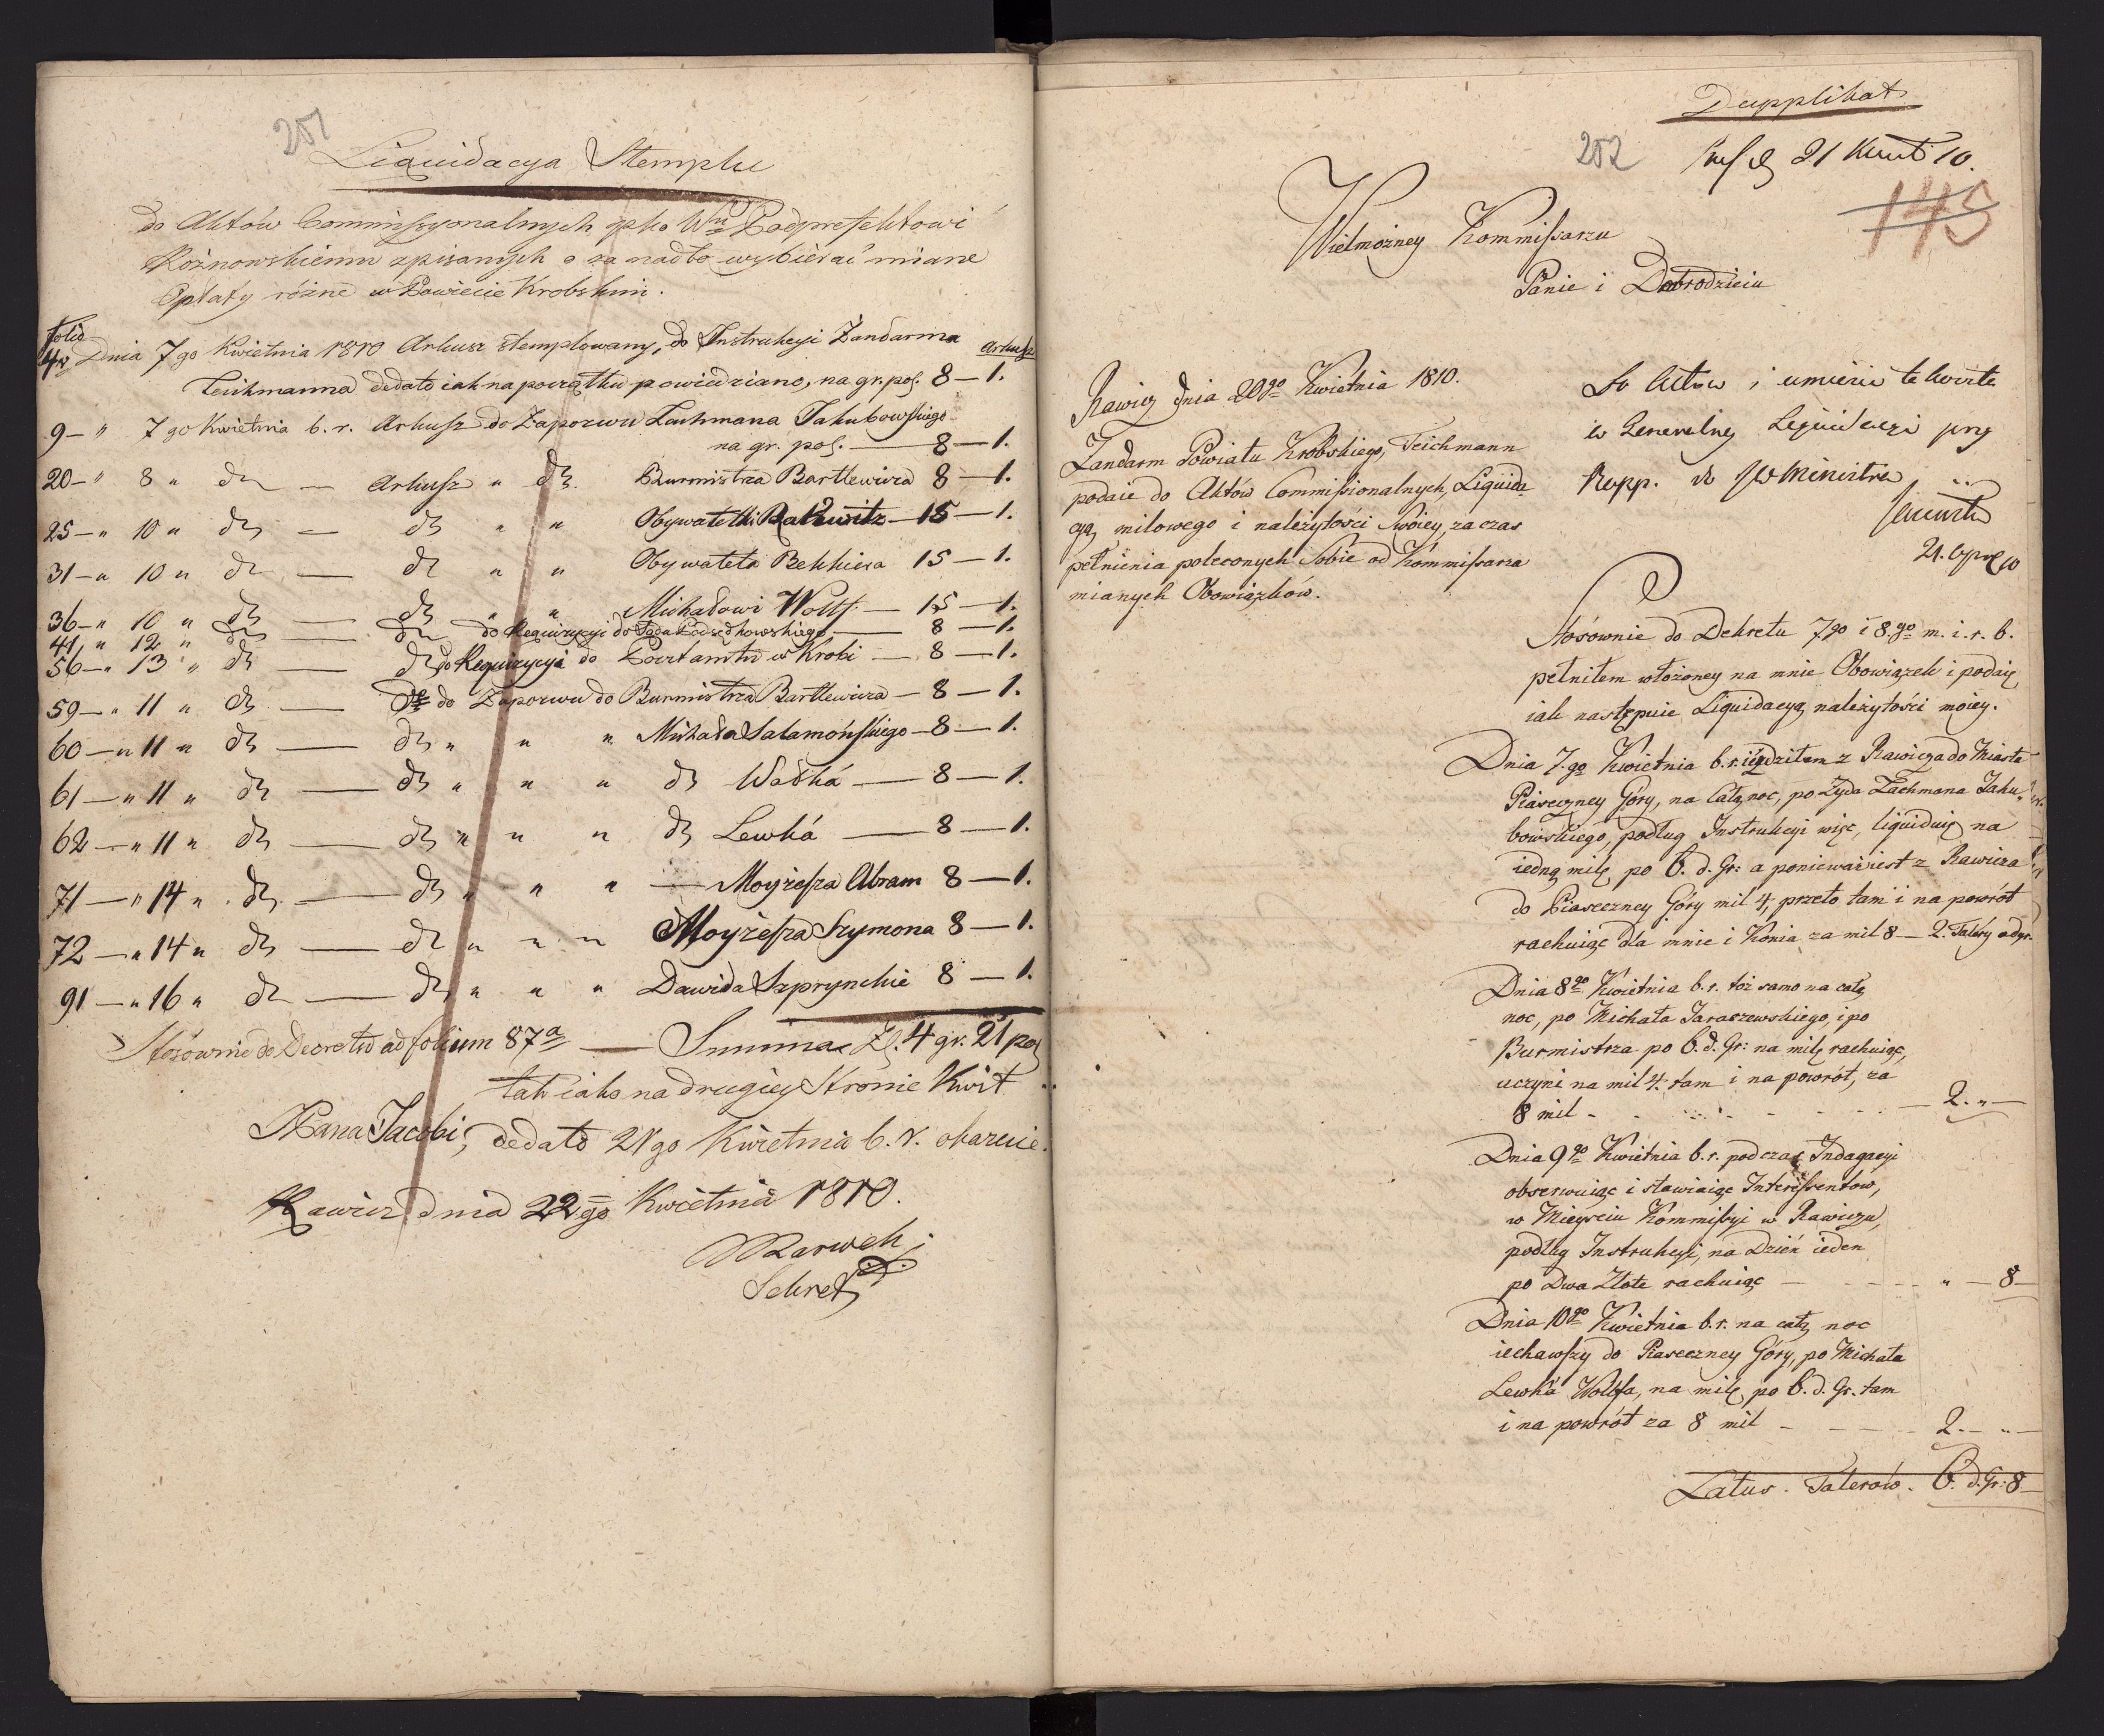 251
Liquidacya Stemplu
do Aktów Commissyonalnych gsko Wu Podprefektowi
Rożnowskiemu spisanych o za nadto wybierać miane
Opłaty różne w Powiecie Krobskim.
folio
4 Dnia 7go Kwietnia 1810 Arkusz stemplowany, do Instrukcyi Żandarma Arkusz
Teichmanna dedato iak na początku powiedziano, na gr. pol. 8 — 1.
9 — " 7go Kwietnia b. r. Arkusz do Zapozwu Lachmana Jakubowskiego
na gr. pol. — 8 — 1.
20 — " 8 " do — Arkusz " do Burmistrza Bartlewicza 8 — 1.
25 — " 10 " do — do " " Obywatelki — 15 — 1.
31 — " 10 " do — do " " Obywatela Bekkiera 15 — 1.
36 — " 10 " do — do " " Michałowi Wolff — 15 — 1.
41 " 12 " do — do do Requizycyi do — 8 — 1.
56 — " 13 " do — do do Requizycyi do Pocztamtu w Krobi — 8 — 1.
59 — " 11 " do — do do Zapozwu do Burmistrza Bartlewicza — 8 — 1.
60 — " 11 " do — do " " " Michała Salamońskiego — 8 — 1.
61 — " 11 " do — do " " " do Wolká — 8 — 1.
62 — " 11 " do — do " " " do Lewká — 8 — 1.
71 — " 14 " do — do " " " — Moyżesza Abram 8 — 1.
72 — " 14 " do — do " " " Moyżesza Szymona 8 — 1.
91 — " 16 " do — do " " " Dawida Szprynckie 8 — 1.
Stósównie do Decretu ad folium 87a — Summa Zł. 4 gr. 21 pol
tak iako na drugiey Stronie Kwit
JPana Jacobi, dedato 21go Kwietnia b. r. okazuie.
Rawicz dnia 22go Kwietnia 1810.
Marweh
Sekret
Dupplikat
252 21 Kwit 10.
145
Wielmożney Kommissarzu
Panie i Dobrodzieiu
Rawicz dnia 20go Kwietnia 1810.
Żandarm Powiatu Krobskiego, Teichmann
podaie do Aktów Commissionalnych, Liquida-
cyą milowego i należytości swoiey, za czas
pełnienia poleconych Sobie od Kommissarza
mianych Obowiązków.
Do Aktow i umieścić te koszta
w Generalney Liquidacyi przy
Rapp. do JW Ministra
21. Apr 10
Stósównie do Dekretu 7go i 8.go m. i. r. b.
pełniłem włożoney na mnie Obowiązek i podaię
iak następuie Liquidacyą należytości moiey.
Dnia 7.go Kwietnia b. r. iezdziłem z Rawicza do Miasta
Piaseczney Góry, na całą noc, po Żyda Lachmana Jaku-
bowskiego, podług Instrukcyi więc, liquiduię na
iedną milę po 6. d. Gr: a ponieważ iest z Rawicza
do Piaseczney Góry mil 4, przeto tam i na powrót
rachuiąc dla mnie i Konia za mil 8 — 2. Talery adgr.
Dnia 8go Kwietnia b. r. toż samo na całą
noc, po Michała Jaraczewskiego, i po
Burmistrza po 6. d. Gr: na milę rachuiąc,
uczyni na mil 4. tam i na powrót, za
8 mil — 2. " —
Dnia 9go Kwietnia b. r. podczas Indagacyi
obserwuiąc i stawiaiąc Interessentow,
w Mieyscu Kommissyi w Rawiczu,
podług Instrukcyi, na Dzień ieden
po Dwa Złote rachuiąc — " — 8 —
Dnia 10go Kwietnia b. r. na całą noc
iechawszy do Piaseczney Góry, po Michała
Lewká Wolffa, na milę po 6. d. Gr. tam
i na powrót za 8 mil — 2. — " —
Latus. Talerów. 6. d. Gr: 8 —